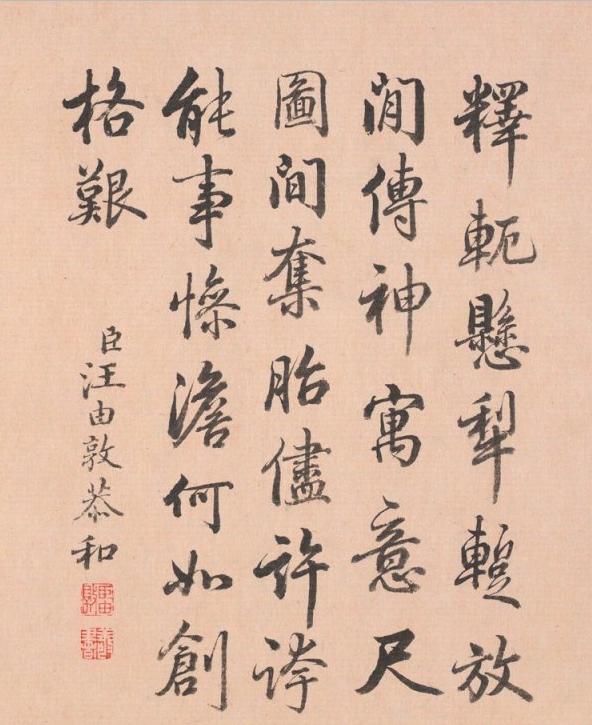 釋軛懸犁蹔放
閒傳神寓意尺
圖間奪胎儘許誇
能事慘澹何如創
格艱
臣汪由敦恭和